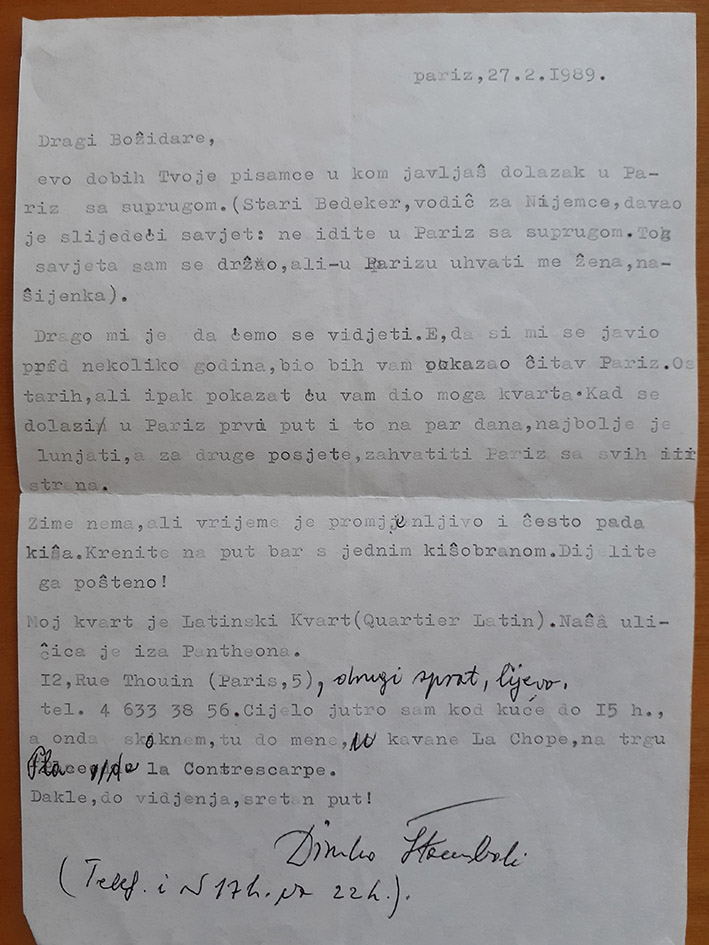 pariz,27.2.I989.
Dragi Božidare,
evo dobih Tvoje pisamce u kom javljaš dolazak u Pa-
riz sa suprugom.(Stari Bedeker,vodič za Nijemce,davao
je slijedeći savjet: ne idite u Pariz sa suprugom.Tog
savjeta sam se držao,ali-u Parizu uhvati me žena,na-
šijenka).
Drago mi je da ćemo se vidjeti.E,da si mi se javio
pred nekoliko godina,bio bih vam pokazao čitav Pariz.Os
tarih,ali ipak pokazat ću vam dio moga kvarta.Kad se
dolazi u Pariz prvi put i to na par dana,najbolje je
lunjati,a za druge posjete,zahvatiti Pariz sa svih iii
strana.
Zime nema,ali vrijeme je promjenljivo i često pada
kiša.Krenite na put bar s jednim kišobranom.Dij lite
ga pošteno!
Moj kvart je Latinski Kvart(Quartier Latin).Naša uli-
čica je iza Pantheona.
I2,Rue Thouin (Paris,5), drugi sprat, lijevo.
tel. 4 633 38 56.Cijelo jutro sam kod kuće do I5 h.,
a onda skoknem,tu do mene, u kavane La Chope,na trgu
Place de la Contrescarpe.
Dakle,do vidjenja,sretan put!
Dinko Štambak
(Telef. i 17h. 22h.).